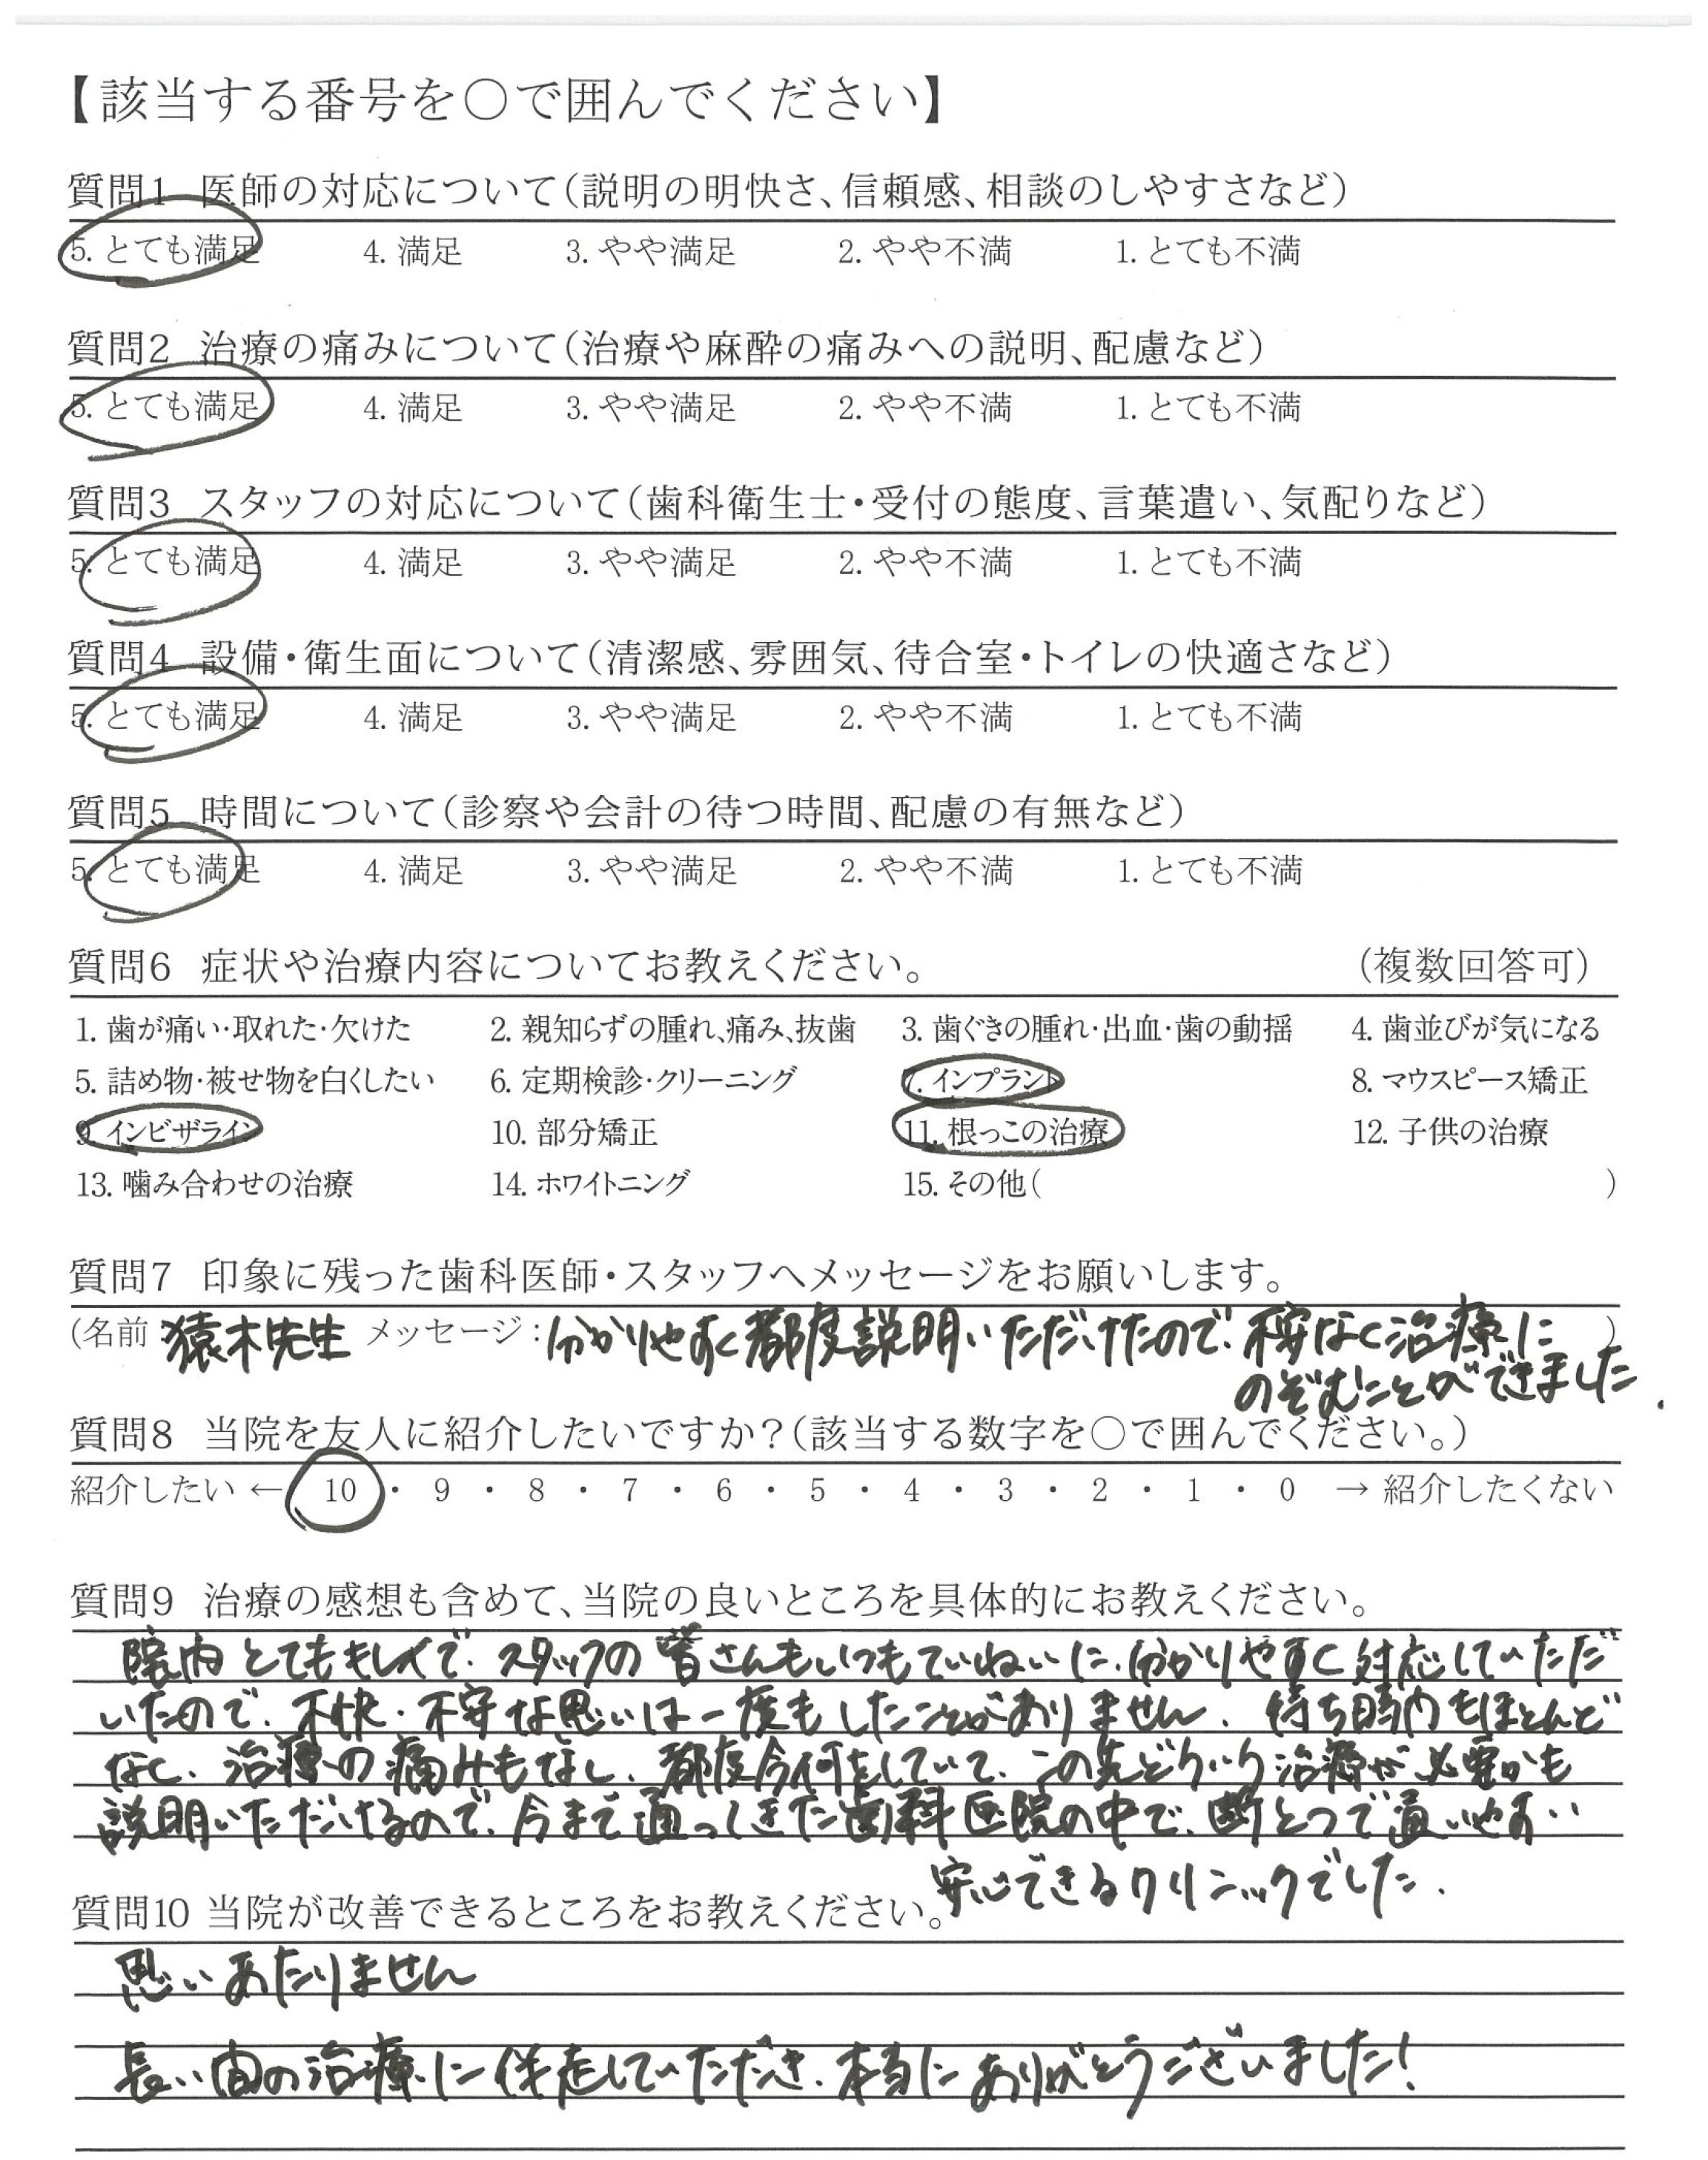 【該当する番号を○で囲んでください】
質問1 医師の対応について(説明の明快さ、信頼感、相談のしやすさなど)
5. とても満足 4. 満足 3. やや満足 2. やや不満 1. とても不満
質問2 治療の痛みについて(治療や麻酔の痛みへの説明、配慮など)
5. とても満足 4. 満足 3. やや満足 2. やや不満 1. とても不満
質問3 スタッフの対応について(歯科衛生士・受付の態度、言葉遣い、気配りなど)
5. とても満足 4. 満足 3. やや満足 2. やや不満 1. とても不満
質問4 設備・衛生面について(清潔感、雰囲気、待合室・トイレの快適さなど)
5. とても満足 4. 満足 3. やや満足 2. やや不満 1. とても不満
質問5 時間について(診察や会計の待つ時間、配慮の有無など)
5. とても満足 4. 満足 3. やや満足 2. やや不満 1. とても不満
質問6 症状や治療内容についてお教えください。 (複数回答可)
1. 歯が痛い・取れた・欠けた 2. 親知らずの腫れ、痛み、抜歯 3. 歯ぐきの腫れ・出血・歯の動揺 4. 歯並びが気になる
5. 詰め物・被せ物を白くしたい 6. 定期検診・クリーニング 7. インプラント 8. マウスピース矯正
9. インビザライン 10. 部分矯正 11. 根っこの治療 12. 子供の治療
13. 噛み合わせの治療 14. ホワイトニング 15. その他( )
質問7 印象に残った歯科医師・スタッフへメッセージをお願いします。
(名前 猿木先生 メッセージ: 分かりやすく都度説明いただけたので、不安なく治療に )
のぞむことができました.
質問8 当院を友人に紹介したいですか?(該当する数字を○で囲んでください。)
紹介したい ← 10 ・ 9 ・ 8 ・ 7 ・ 6 ・ 5 ・ 4 ・ 3 ・ 2 ・ 1 ・ 0 → 紹介したくない
質問9 治療の感想も含めて、当院の良いところを具体的にお教えください。
院内とてもキレイで、スタッフの皆さんもいつもていねいに、分かりやすく対応していただ
いたので、不快・不安な思いは一度もしたことがありません. 待ち時間もほとんど
なく、治療の痛みもなし、都度今何をしていて、この先どういう治療が必要かも
説明いただけるので、今まで通ってきた歯科医院の中で、断とつで通いやすい
安心できるクリニックでした.
質問10 当院が改善できるところをお教えください。
思いあたりません
長い間の治療に伴走していただき、本当にありがとうございました!